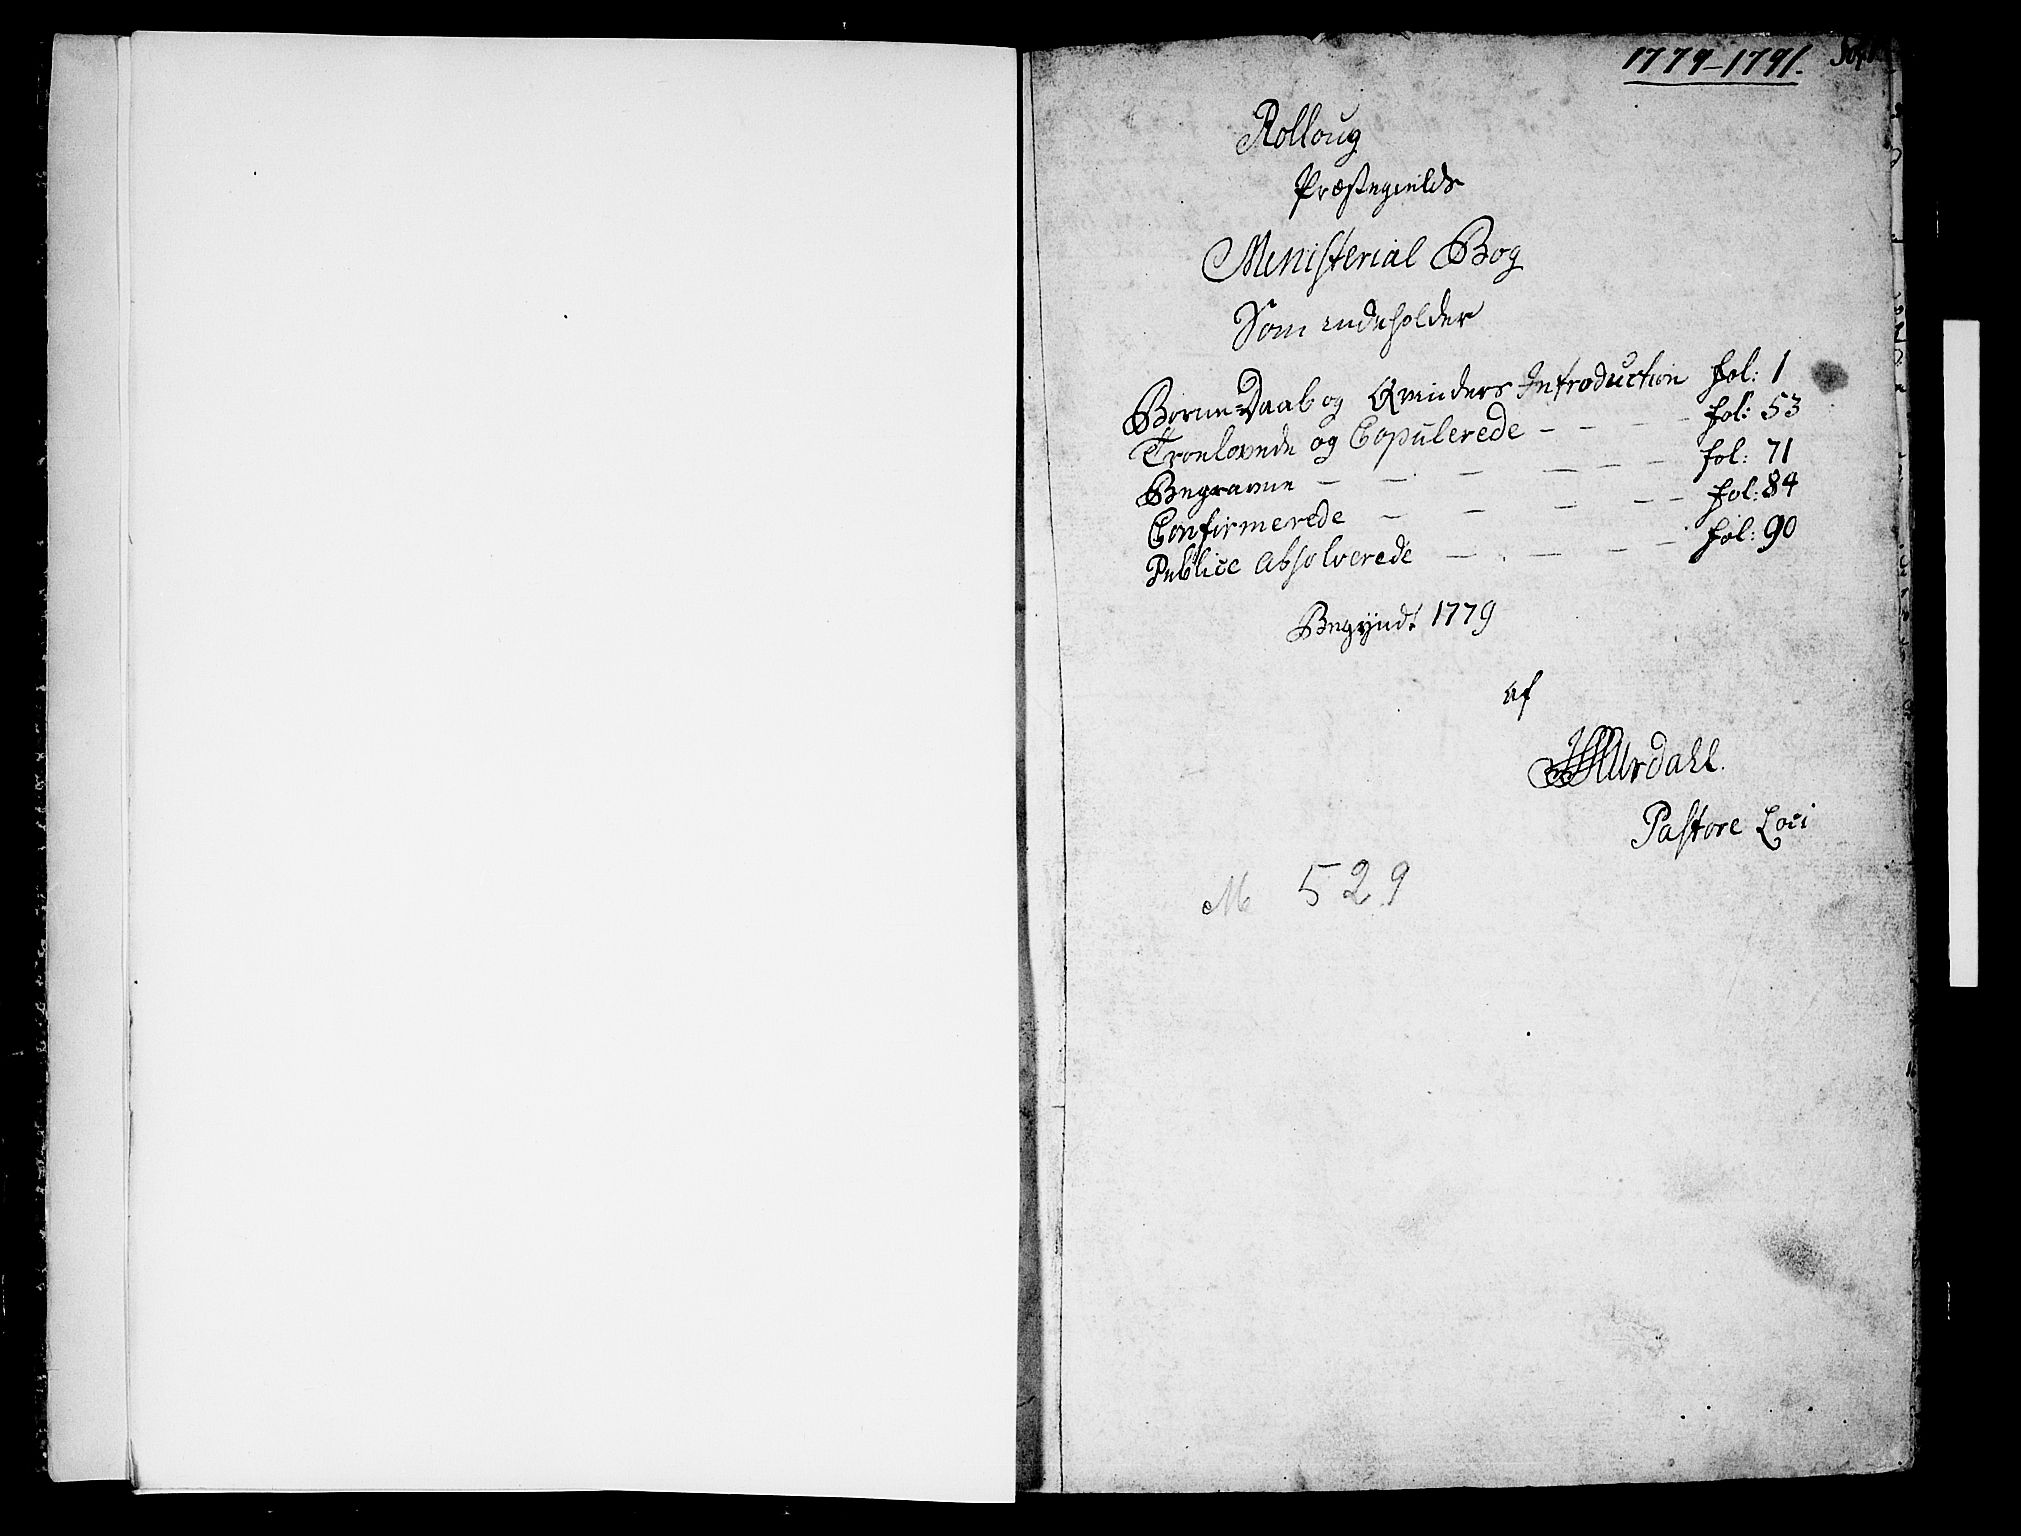 1779-1791.
Rolloug
Præstegields
Ministerial Bog
Som indeholder
Børne-Daab og Qvinders Introduction fol: 1
Troelovede og Copulerede - - - - fol: 53
Begravne - - - - - - fol: 71
Confirmerede - - - - - fol: 84
Publice Absolverede - - - - fol: 90
Begyndt 1779
af
Hurdahl.
Pastore Loci
M 529